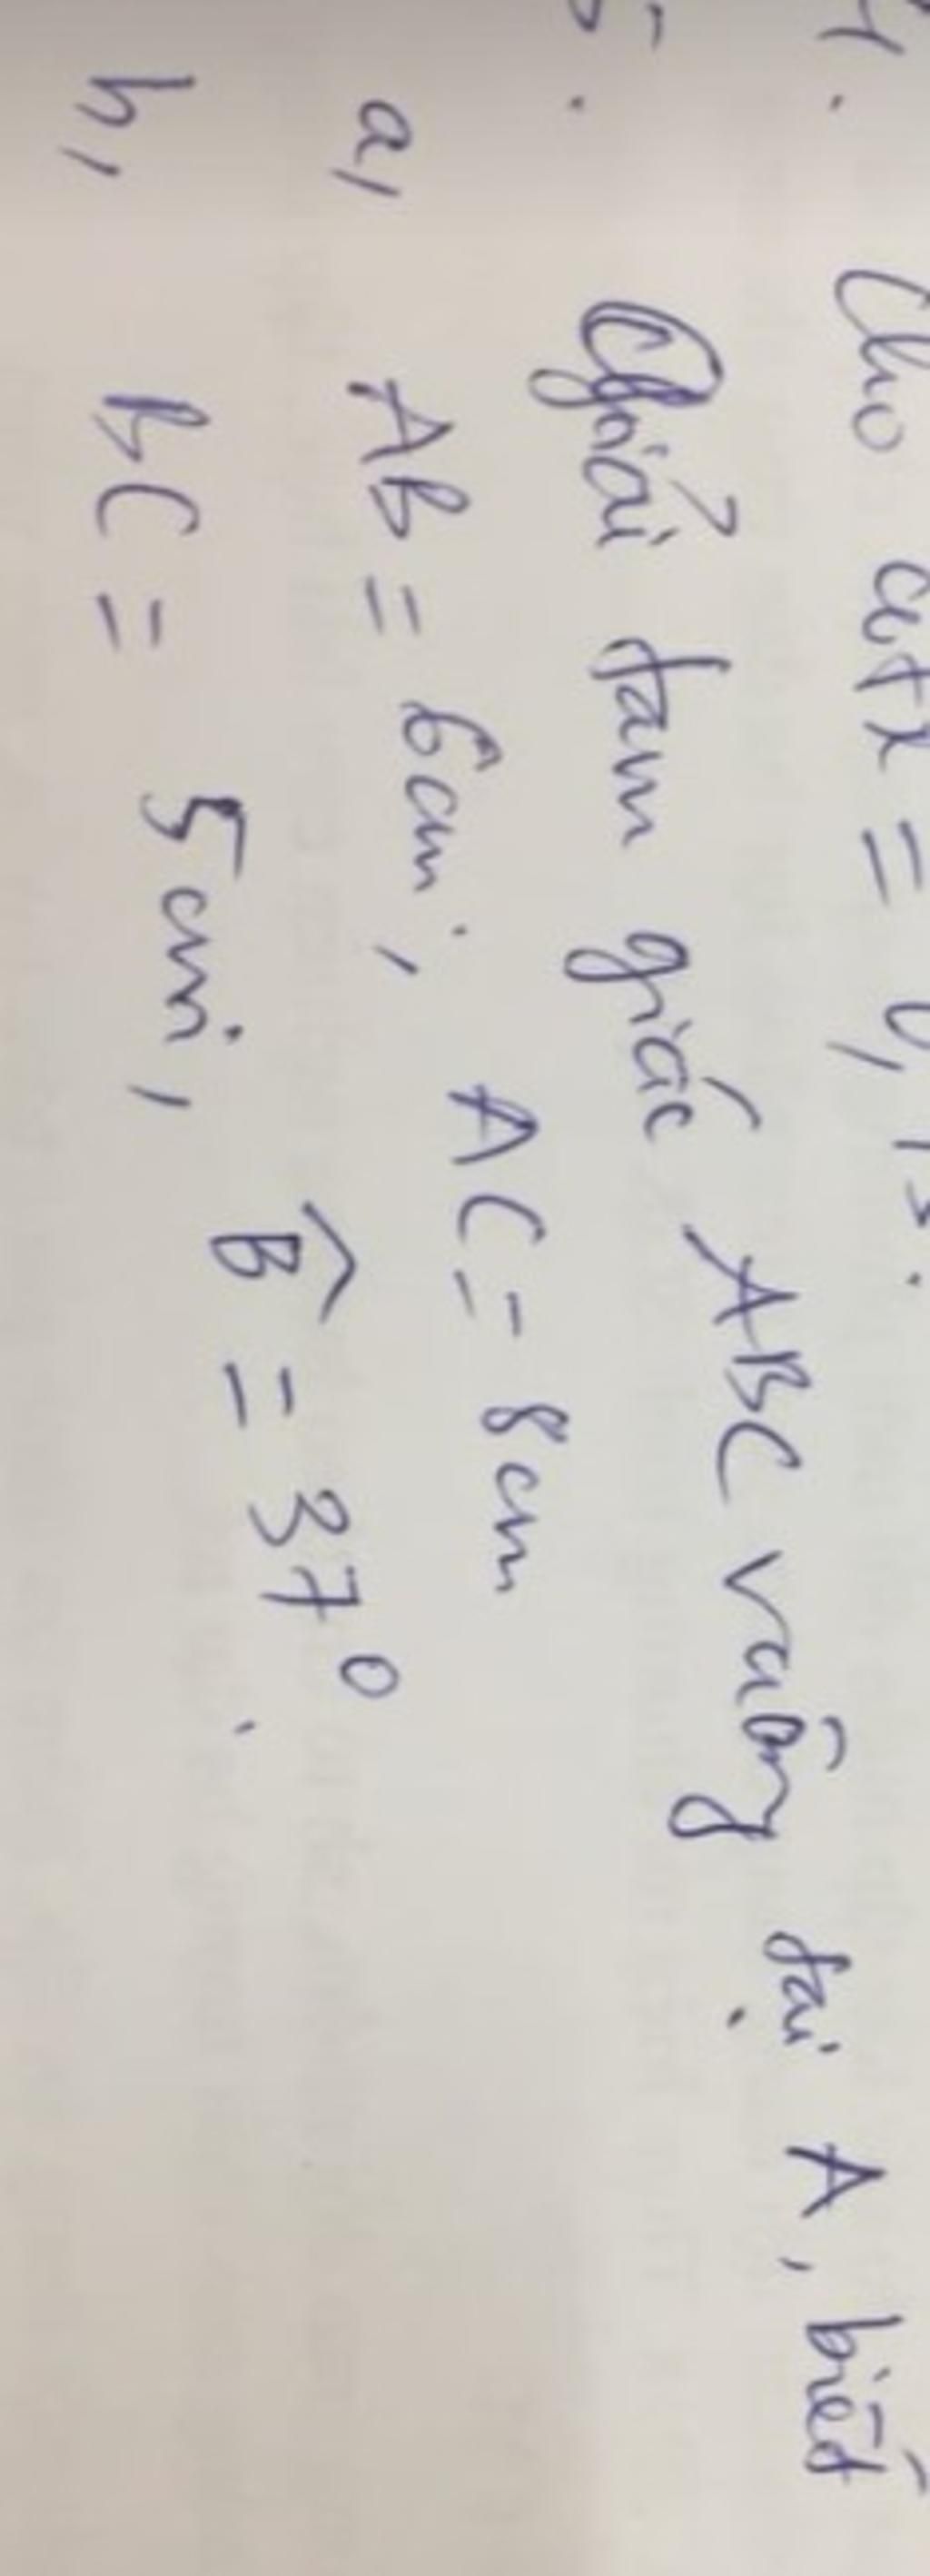 4. Cho cotx =
5. Giải tam giác ABC vuông tại A, biết
a, AB = 6cm; AC = 8cm
b, BC = 5cm, B̂ = 37⁰.